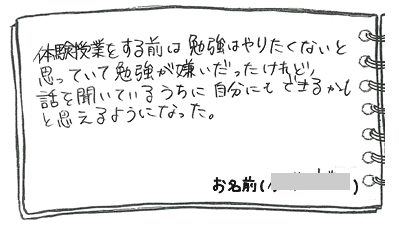 体験授業をする前は勉強はやりたくないと
思っていて勉強が嫌いだったけれど、
話を聞いているうちに自分にもできるかも
と思えるようになった。
お名前( )